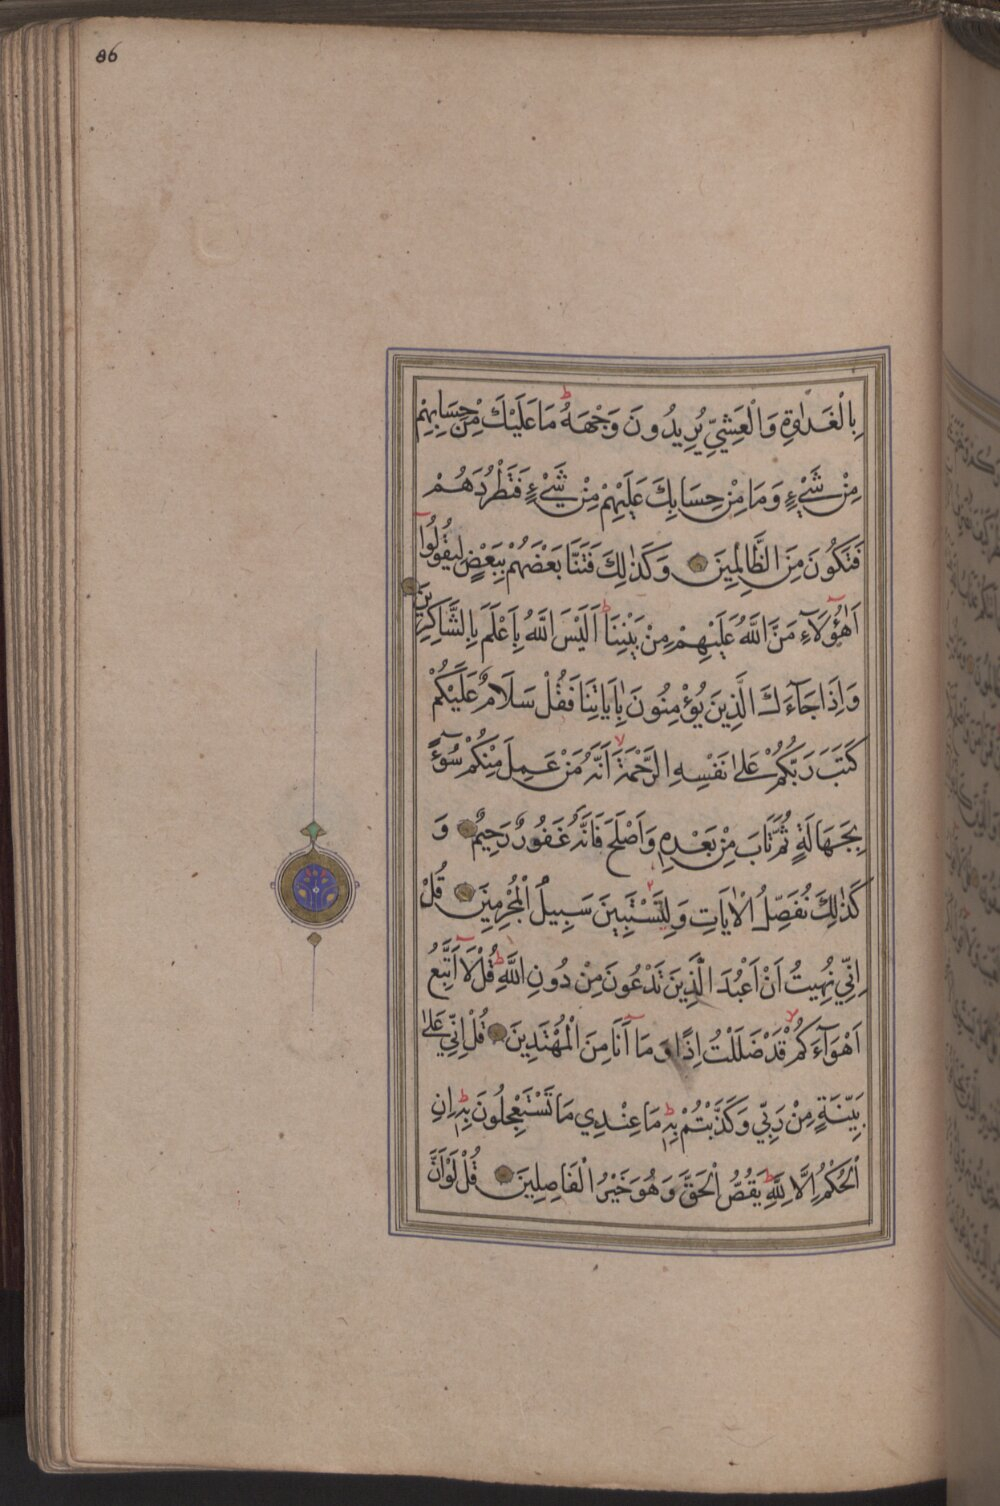 86
بِالْغَدٰوةِ وَالْعَشِيِّ يُرِيدُونَ وَجْهَهُ ط مَا عَلَيْكَ مِنْ حِسَابِهِمْ
مِنْ شَيْءٍ وَمَا مِنْ حِسَابِكَ عَلَيْهِمْ مِنْ شَيْءٍ فَتَطْرُدَهُمْ
فَتَكُونَ مِنَ الظَّالِمِينَ وَكَذٰلِكَ فَتَنَّا بَعْضَهُمْ بِبَعْضٍ لِيَقُولُوا
اَهٰؤُلَاءِ مَنَّ اللَّهُ عَلَيْهِمْ مِنْ بَيْنِنَا ط اَلَيْسَ اللَّهُ بِاَعْلَمَ بِالشَّاكِرِينَ
وَاِذَا جَاءَكَ الَّذِينَ يُؤْمِنُونَ بِاٰيَاتِنَا فَقُلْ سَلَامٌ عَلَيْكُمْ
كَتَبَ رَبُّكُمْ عَلٰى نَفْسِهِ الرَّحْمَةَ لا اَنَّهُ مَنْ عَمِلَ مِنْكُمْ سُوٓءًا
بِجَهَالَةٍ ثُمَّ تَابَ مِنْ بَعْدِهِ وَاَصْلَحَ فَاَنَّهُ غَفُورٌ رَحِيمٌ وَ
كَذٰلِكَ نُفَصِّلُ الْاٰيَاتِ وَلِتَسْتَبِينَ سَبِيلُ الْمُجْرِمِينَ قُلْ
اِنِّي نُهِيتُ اَنْ اَعْبُدَ الَّذِينَ تَدْعُونَ مِنْ دُونِ اللَّهِ ط قُلْ لَا اَتَّبِعُ
اَهْوَاءَكُمْ لا قَدْ ضَلَلْتُ اِذًا وَمَا اَنَا مِنَ الْمُهْتَدِينَ قُلْ اِنِّي عَلٰى
بَيِّنَةٍ مِنْ رَبِّي وَكَذَّبْتُمْ بِهِ ط مَا عِنْدِي مَا تَسْتَعْجِلُونَ بِهِ ط اِنِ
الْحُكْمُ اِلَّا لِلَّهِ ط يَقُصُّ الْحَقَّ وَهُوَ خَيْرُ الْفَاصِلِينَ قُلْ لَوْ اَنَّ